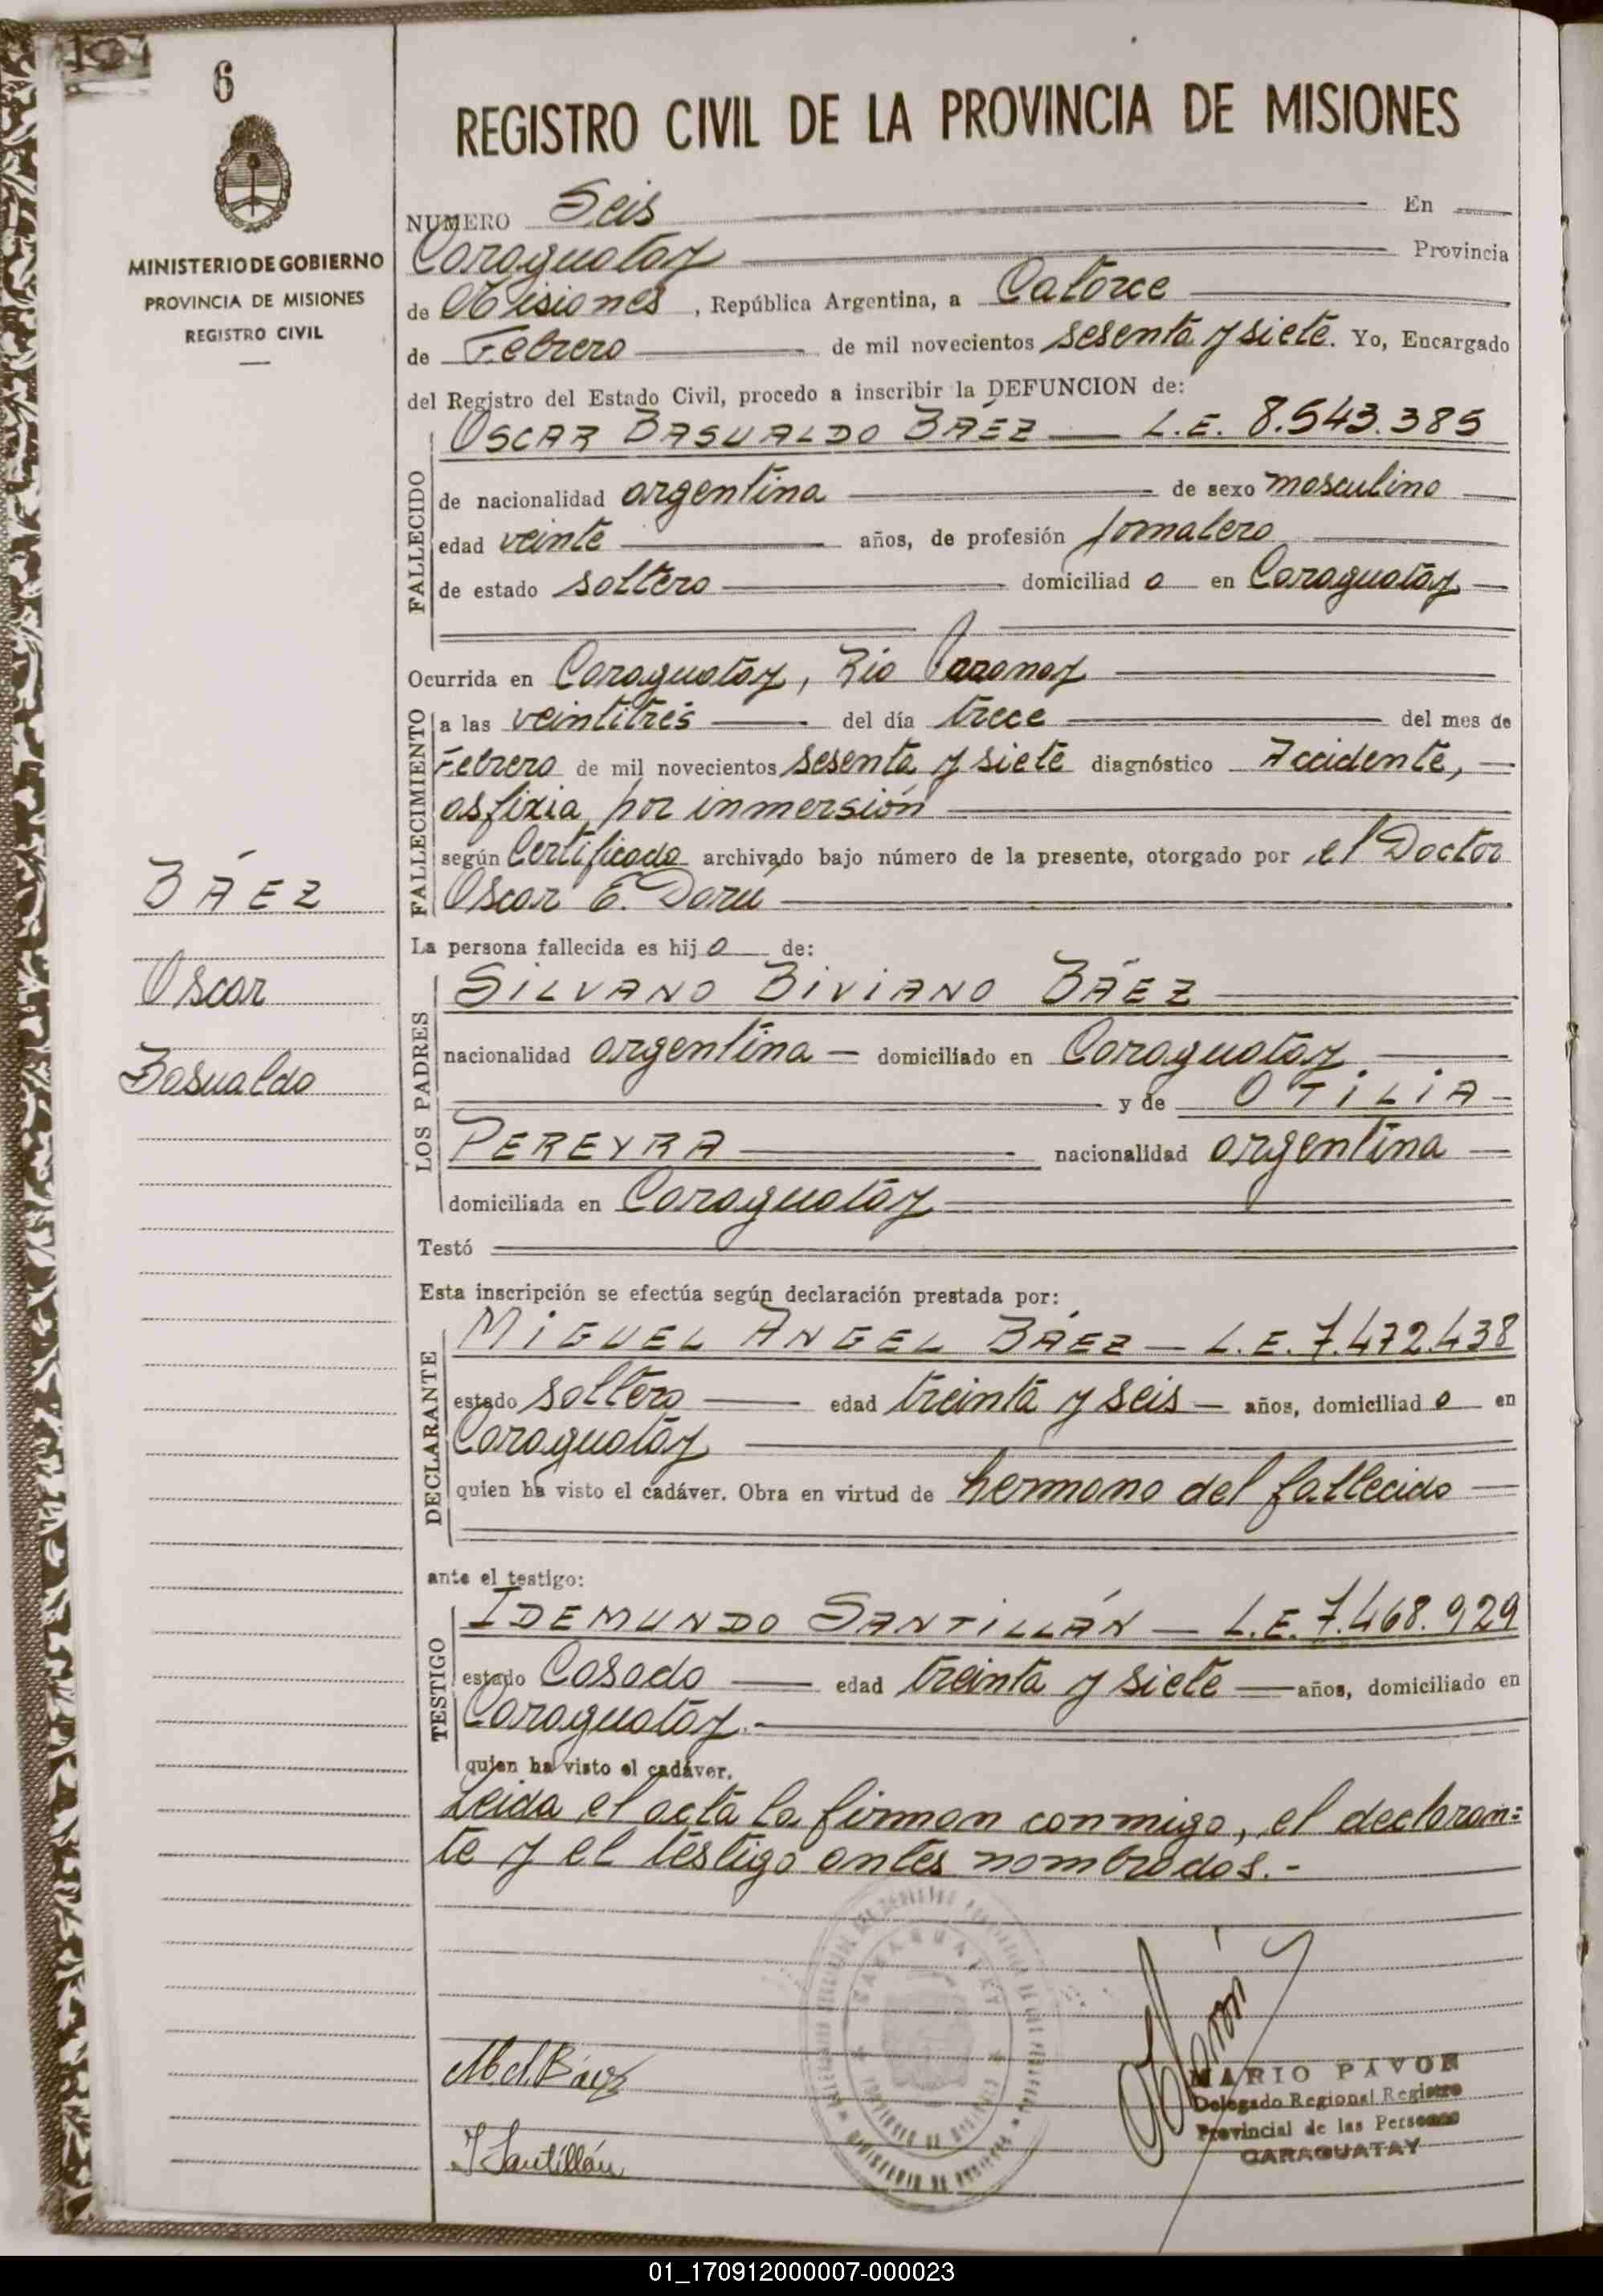 6
MINISTERIO DE GOBIERNO
PROVINCIA DE MISIONES
REGISTRO CIVIL
BÁEZ
Oscar
Basualdo
REGISTRO CIVIL DE LA PROVINCIA DE MISIONES
NUMERO Seis En
Caraguatay Provincia
de Misiones, República Argentina, a Catorce
de Febrero de mil novecientos sesenta y siete. Yo, Encargado
del Registro del Estado Civil, procedo a inscribir la DEFUNCION de:
FALLECIDO
OSCAR BASUALDO BÁEZ — L.E. 8.543.385
de nacionalidad argentina de sexo masculino
edad veinte años, de profesión Jornalero
de estado soltero domiciliad o en Caraguatay
Ocurrida en Caraguatay, Río Paranay
FALLECIMIENTO
a las veintitrés del día trece del mes de
Febrero de mil novecientos sesenta y siete diagnóstico Accidente,
asfixia por inmersión
según Certificado archivado bajo número de la presente, otorgado por el Doctor
Oscar E. Daru
La persona fallecida es hij o de:
LOS PADRES
SILVANO BIVIANO BÁEZ
nacionalidad argentina — domiciliado en Caraguatay
y de OTILIA
PEREYRA nacionalidad argentina
domiciliada en Caraguatay
Testó
Esta inscripción se efectúa según declaración prestada por:
DECLARANTE
MIGUEL ANGEL BÁEZ — L.E. 7.472.438
estado soltero edad treinta y seis — años, domiciliad o en
Caraguatay
quien ha visto el cadáver. Obra en virtud de hermano del fallecido
ante el testigo:
TESTIGO
IDEMUNDO SANTILLÁN — L.E. 7.468.929
estado Casado edad treinta y siete — años, domiciliado en
Caraguatay.-
quien ha visto el cadáver.
Leida el acta la firman conmigo, el declaran=
te y el testigo antes nombrados.-
CARAGUATAY
PROVINCIA DE MISIONES
MINISTERIO DE GOBIERNO
M A. Báez
I Santillán
MARIO PAVON
Delegado Regional Registro
Provincial de las Personas
CARAGUATAY
01_170912000007-000023